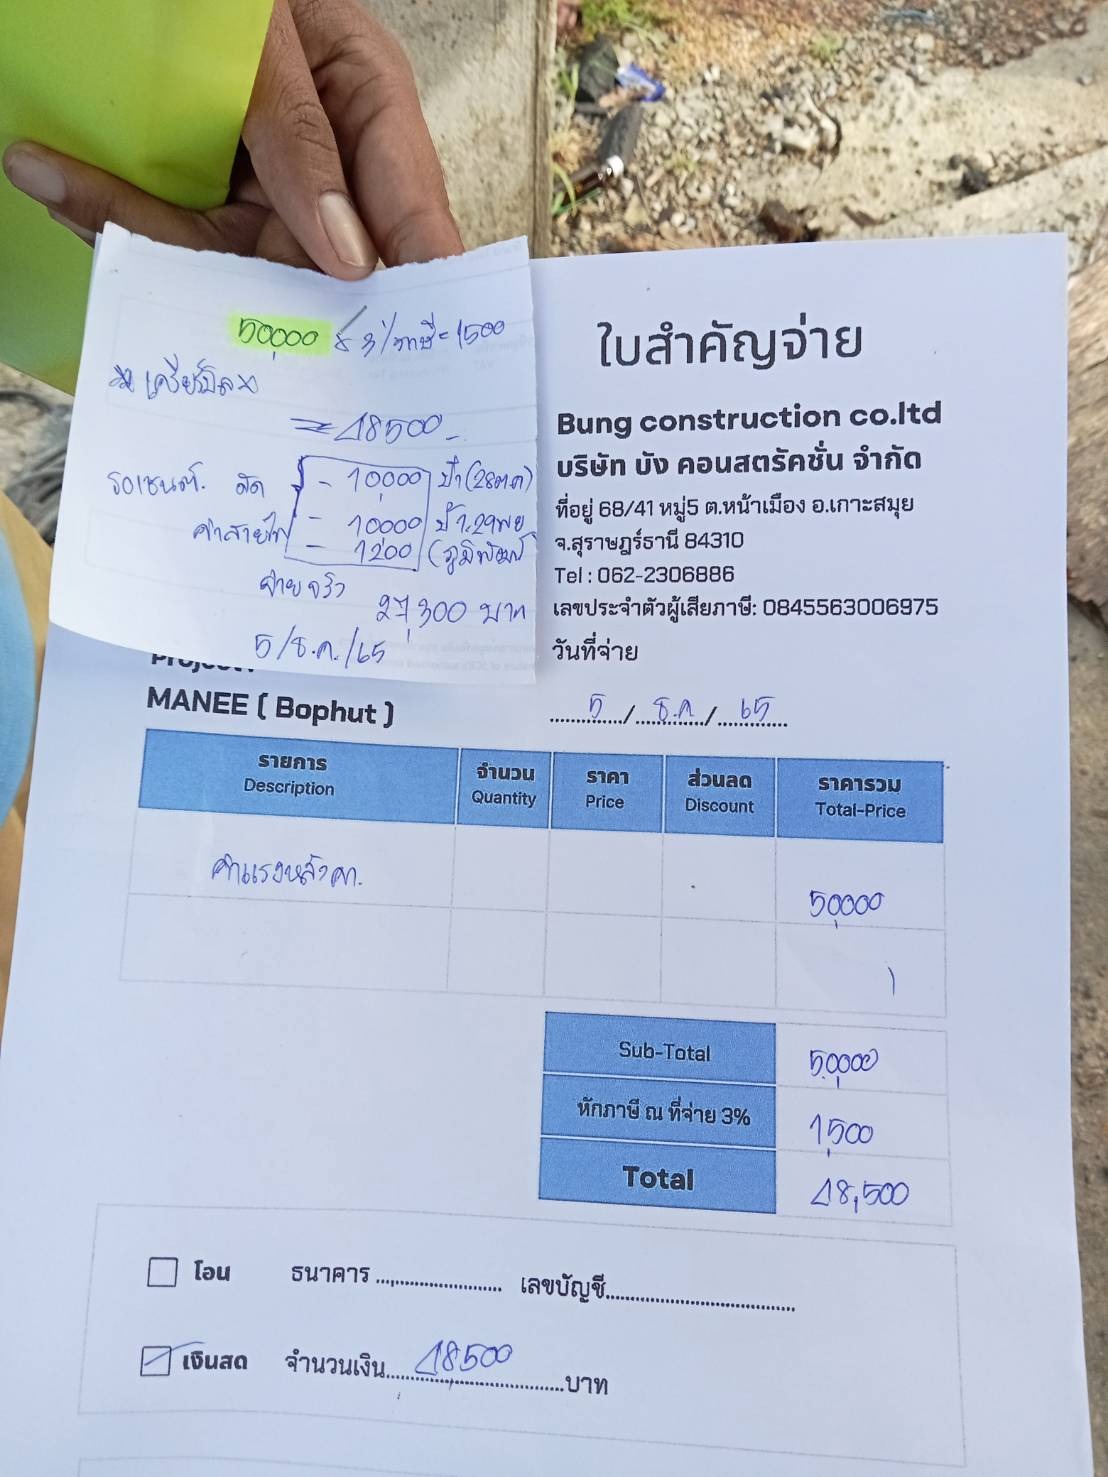 50,000 หัก 3% ภาษี = 1500
** เคลียร์บิล **
= 48500.-
- 10,000 ป๋า (28 ต.ค)
หัก
ค่าสายไฟ - 10000 ป๋า. 29 พย
- 1200
จ่ายจริง
27,300 บาท
5/ธ.ค./65
ใบสำคัญจ่าย
Bung construction co.ltd
บริษัท บัง คอนสตรัคชั่น จำกัด
ที่อยู่ 68/41 หมู่5 ต.หน้าเมือง อ.เกาะสมุย
จ.สุราษฎร์ธานี 84310
Tel : 062-2306886
เลขประจำตัวผู้เสียภาษี: 0845563006975
วันที่จ่าย
5 / ธ.ค / 65
MANEE ( Bophut )
รายการ จำนวน ราคา ส่วนลด ราคารวม
Description Quantity Price Discount Total-Price
ค่าแรงหลังคา. 50,000
Sub-Total 50,000
หักภาษี ณ ที่จ่าย 3% 1,500
Total 48,500
โอน ธนาคาร.......................... เลขบัญชี........................................
เงินสด จำนวนเงิน.....48,500.....บาท